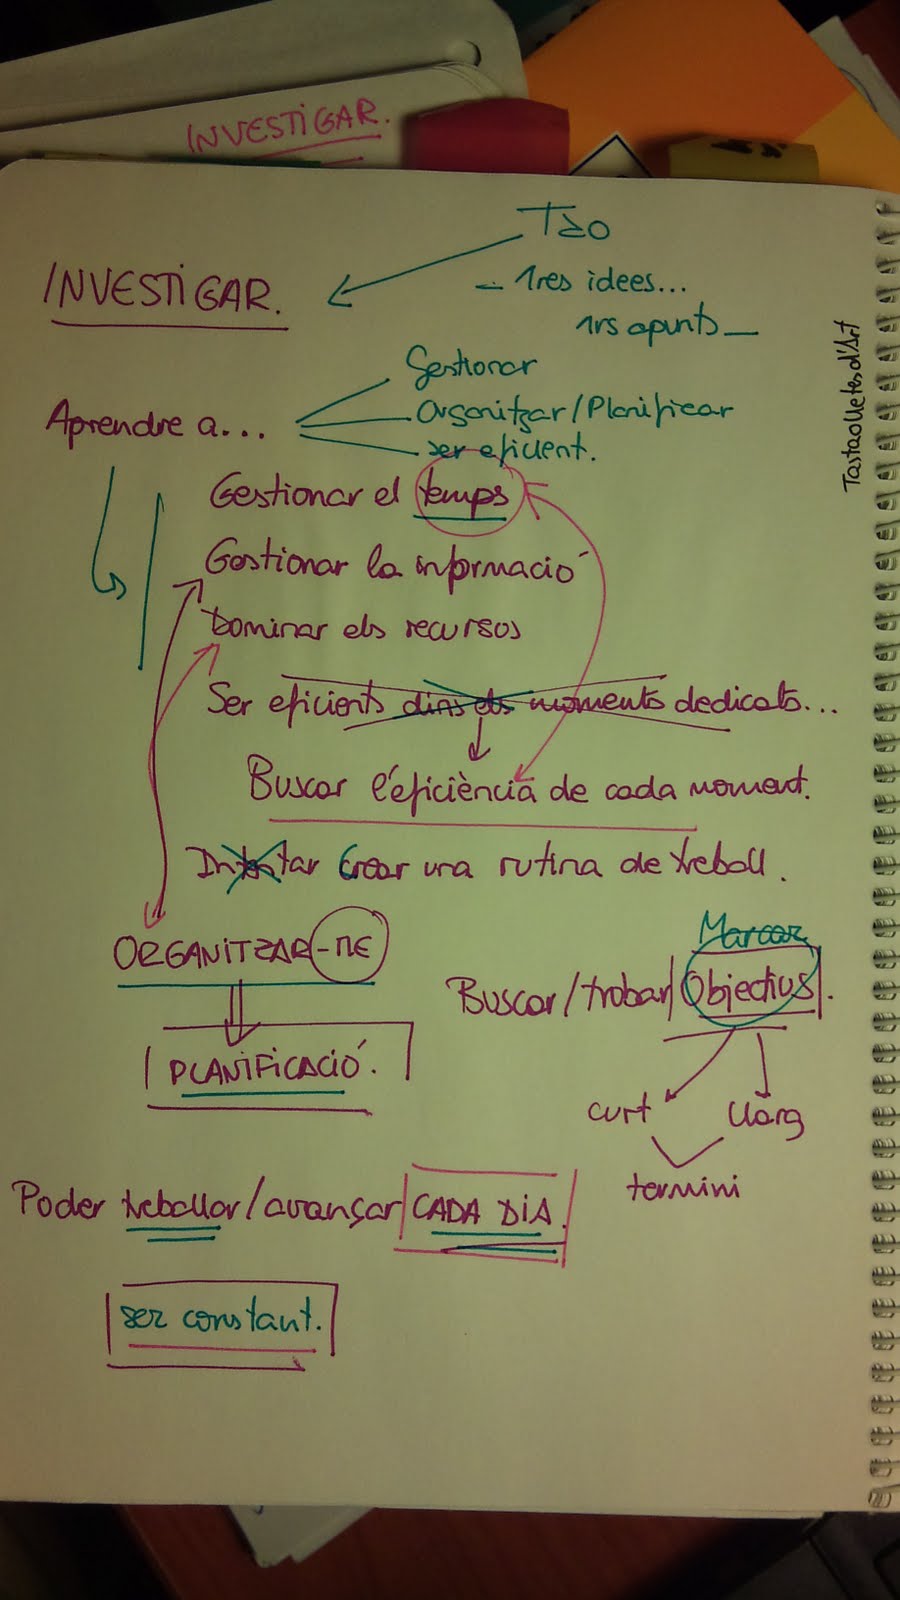 INVESTIGAR.
Tào
INVESTIGAR.
- 1res idees...
1rs apunts -
TastaolletesdArt
Gestionar
Aprendre a...
Organitzar/Planificar
ser eficient.
Gestionar el temps
Gestionar la informació
Dominar els recursos
Ser eficients dins els moments dedicats...
Buscar l'eficiència de cada moment.
Intentar Crear una rutina de treball.
ORGANITZAR-ME
Marcar
Buscar/trobar Objectius.
PLANIFICACIÓ.
curt
llarg
termini
Poder treballar/avançar CADA DIA.
ser constant.